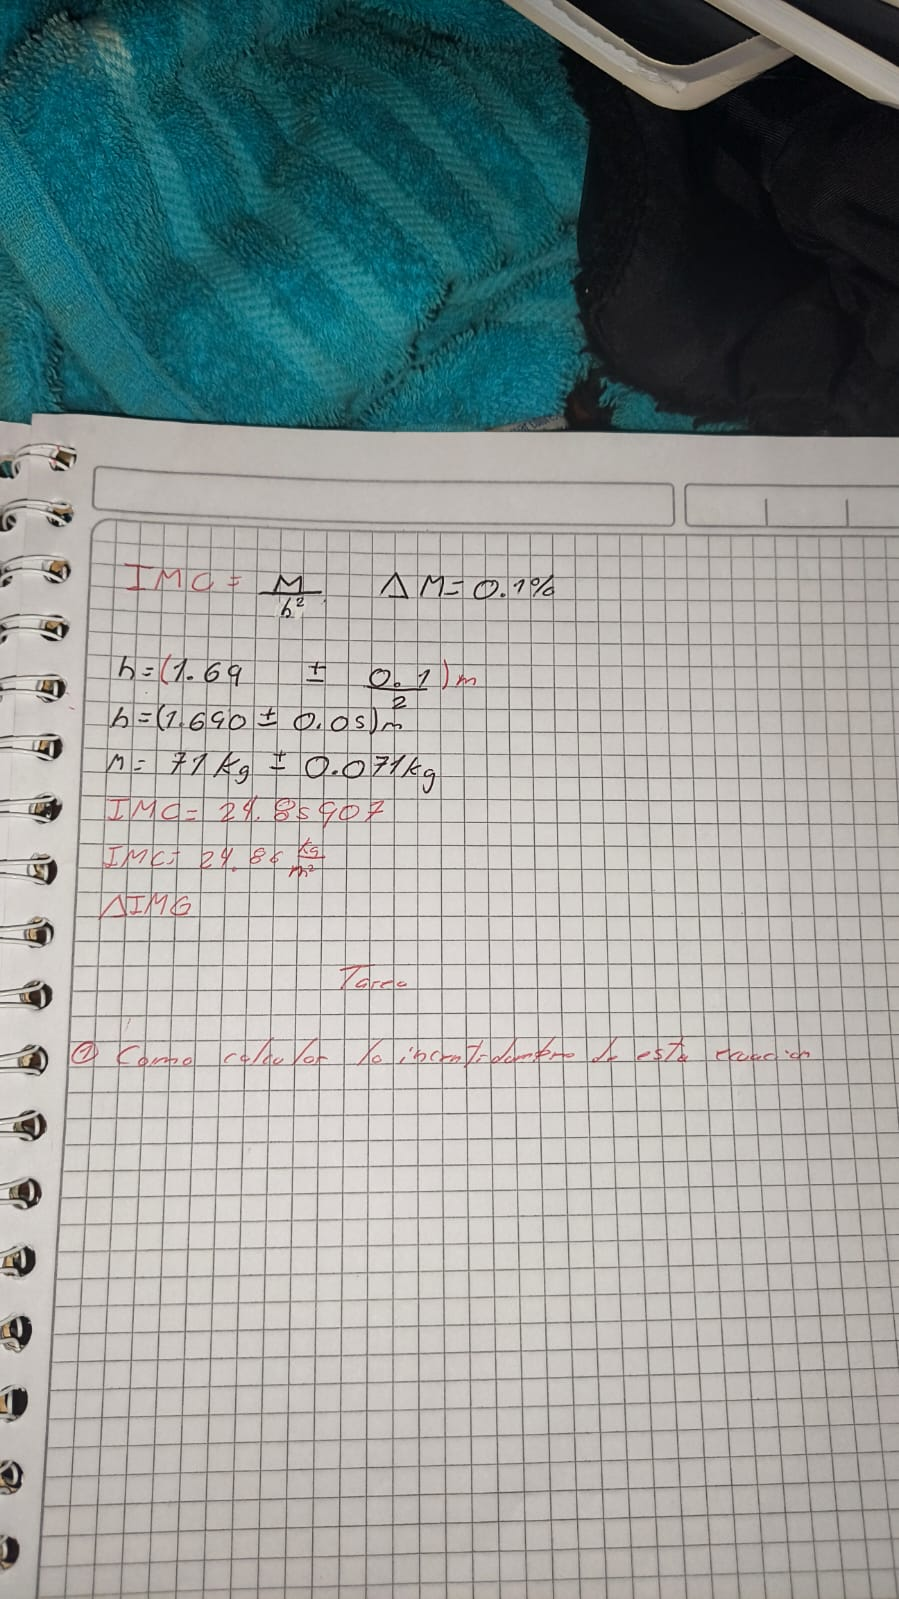 IMC = M/h² ΔM= 0.1%
h=(1.69 ± 0.1/2)m
h=(1.690 ± 0.05)m
M= 71 Kg ± 0.071kg
IMC= 24.85907
IMC= 24.86 kg/m²
ΔIMG
Tarea
① Como calcular la incertidumbre de esta ecuacion